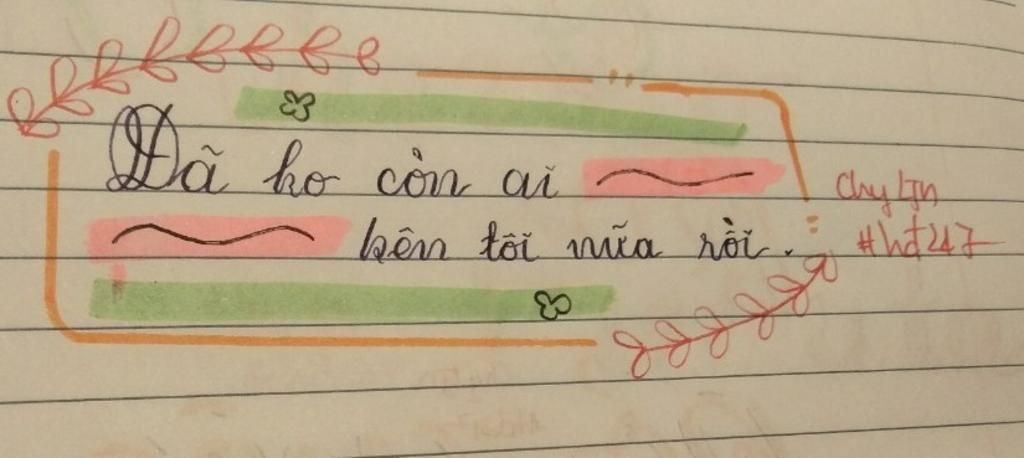 Đã ko còn ai
bên tôi nữa rồi.
Chylyn
#hd247